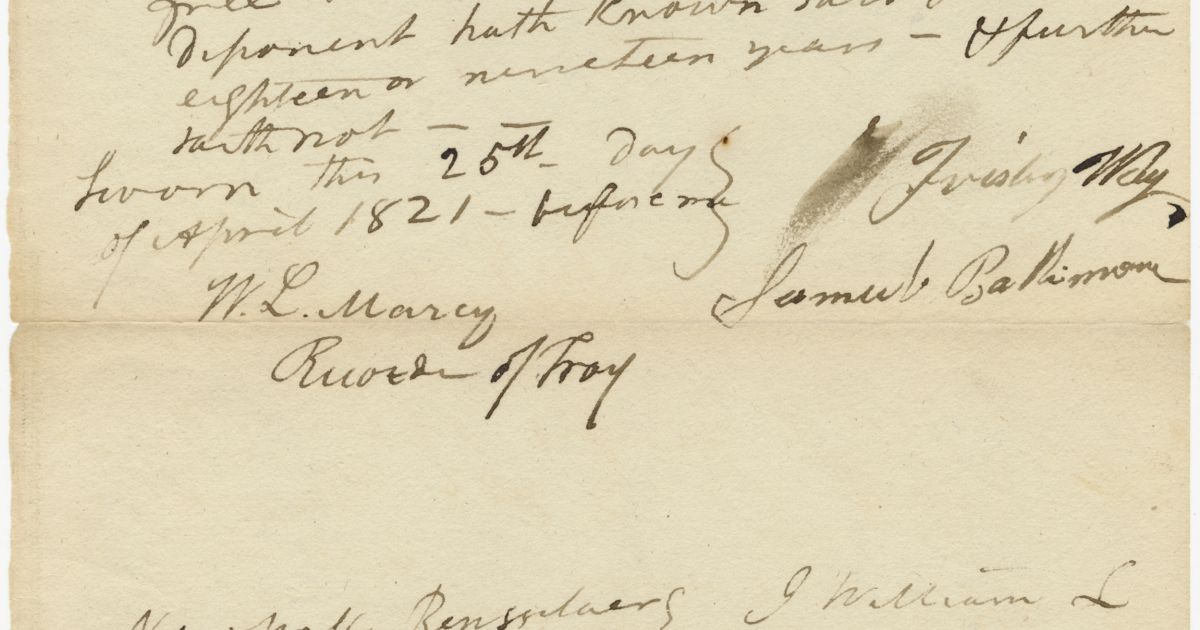 free
Deponent hath known said
eighteen or nineteen years — & further
saith not —
Sworn this 25th day
of April 1821 — before me
Frisby Way
Samuel Baltimore
W. L. Marcy
Recorder of Troy
Rensselaer
I William L